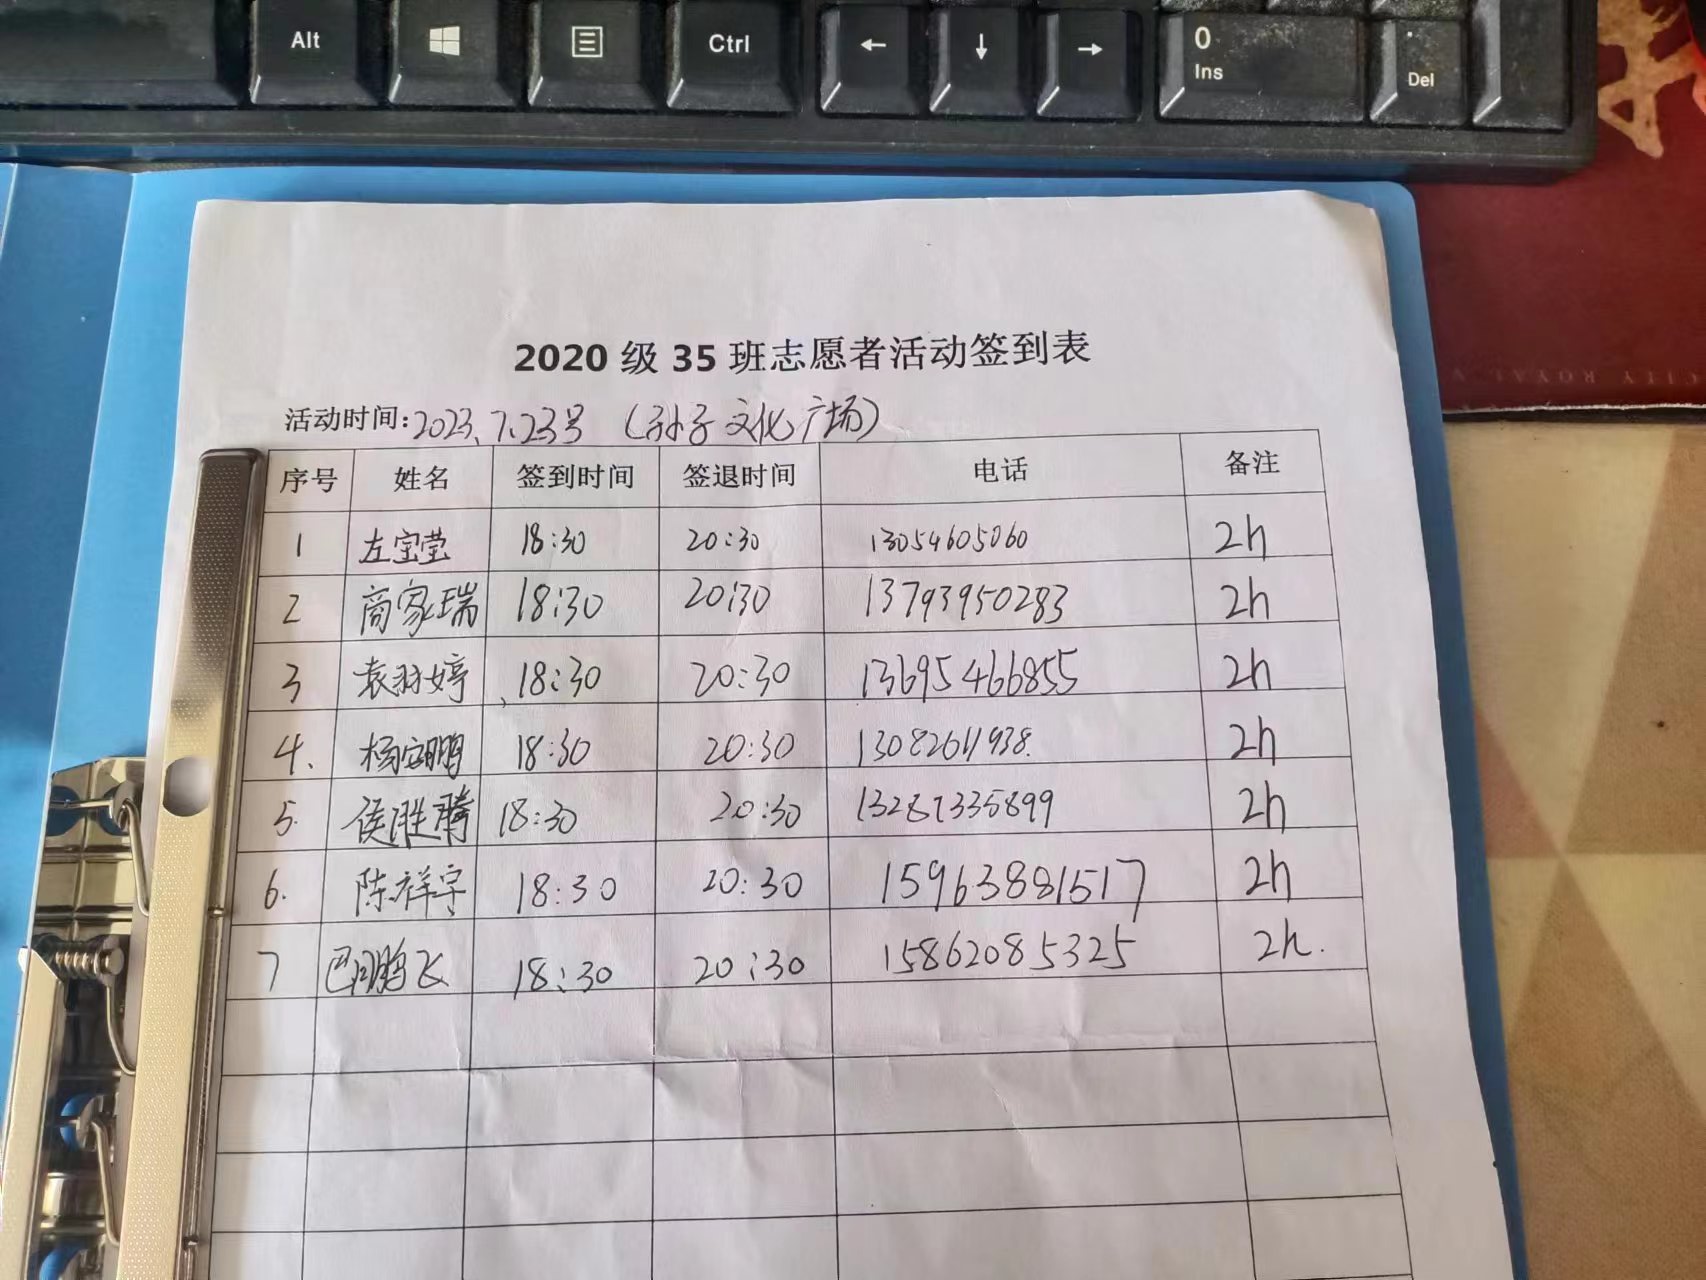 Alt
Ctrl
←
↓
→
0
Ins
.
Del
CITY ROYAL
2020 级 35 班志愿者活动签到表
活动时间: 2023.7.23号 (孙子文化广场)
序号 姓名 签到时间 签退时间 电话 备注
1 左宝莹 18:30 20:30 13054605060 2h
2 商家瑞 18:30 20:30 13793950283 2h
3 袁羽婷 18:30 20:30 13695466855 2h
4. 杨安鹏 18:30 20:30 13082611938. 2h
5. 侯胜腾 18:30 20:30 13287335899 2h
6. 陈祥宇 18:30 20:30 15963881517 2h
7 巴鹏飞 18:30 20:30 15862085325 2h.